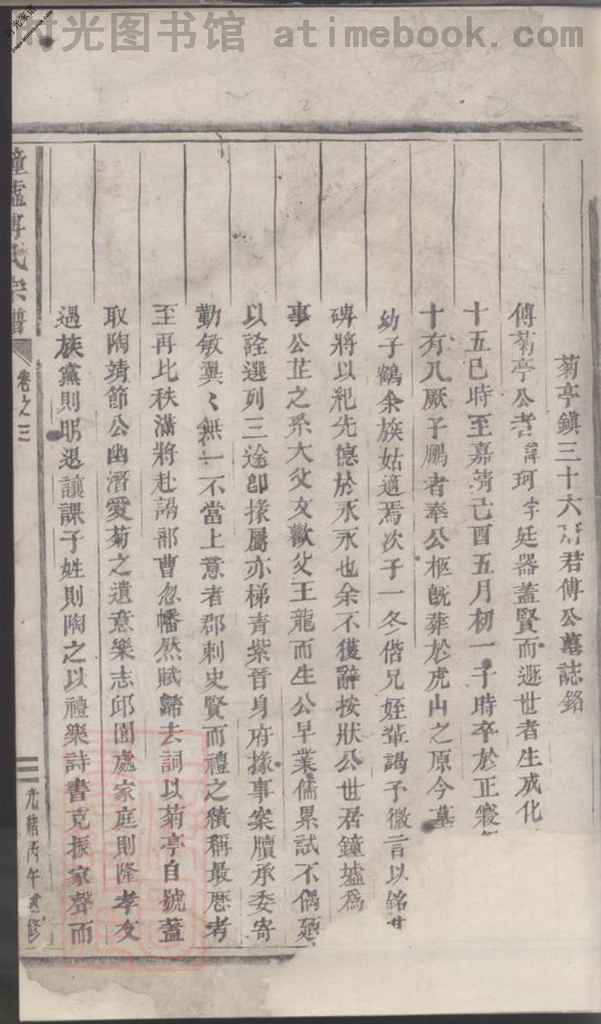 时光图书馆 atimebook.com
菊亭鎮三十六府君傅公墓誌銘
傅菊亭公者諱珂字廷器蓋賢而遯世者生成化
十五己時至嘉靖己酉五月初一子時卒於正寢
十有八厥子鵬者奉公柩既葬於虎山之原今墓
幼子鶴余族姑適焉次子一冬偕兄姪輩謁予徵言以銘
碑將以紀先德於永永也余不獲辭按狀公世居鐘墟爲
事公芷之系大父文歡父王龍而生公早業儒累試不偶
以詮選列三途卽掾屬亦梯青紫晉身府掾事案牘承委寄
勤敏異〻無一不當上意者郡刺史賢而禮之積稱最歷考
至再比秩滿將赴謁部曹忽幡然賦歸去詞以菊亭自號蓋
取陶靖節公幽潛愛菊之遺意樂志邱園處家庭則隆孝友
遇族黨則明退讓課子姓則陶之以禮樂詩書克振家聲而
鐘墟傅氏宗譜
卷之三
二
光緒丙午重修